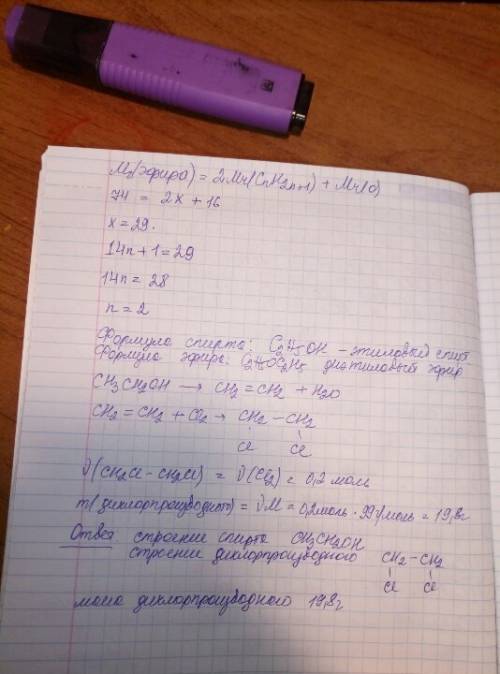 Mr(эфира) = 2Mr(CnH2n+1) + Mr(O)
74 = 2x + 16
x = 29.
14n + 1 = 29
14n = 28
n = 2
Формула спирта: C2H5OH - этиловый спирт
Формула эфира: C2H5OC2H5 диэтиловый эфир
CH3CH2OH → CH2 = CH2 + H2O
CH2 = CH2 + Cl2 → CH2 - CH2
Cl Cl
ν(CH2Cl - CH2Cl) = ν(Cl2) = 0,2 моль
m(дихлорпроизводного) = νM = 0,2моль · 99г/моль = 19,8г
Ответ строение спирта CH3CH2OH
строение дихлорпроизводного CH2 - CH2
Cl Cl
масса дихлорпроизводного 19,8г